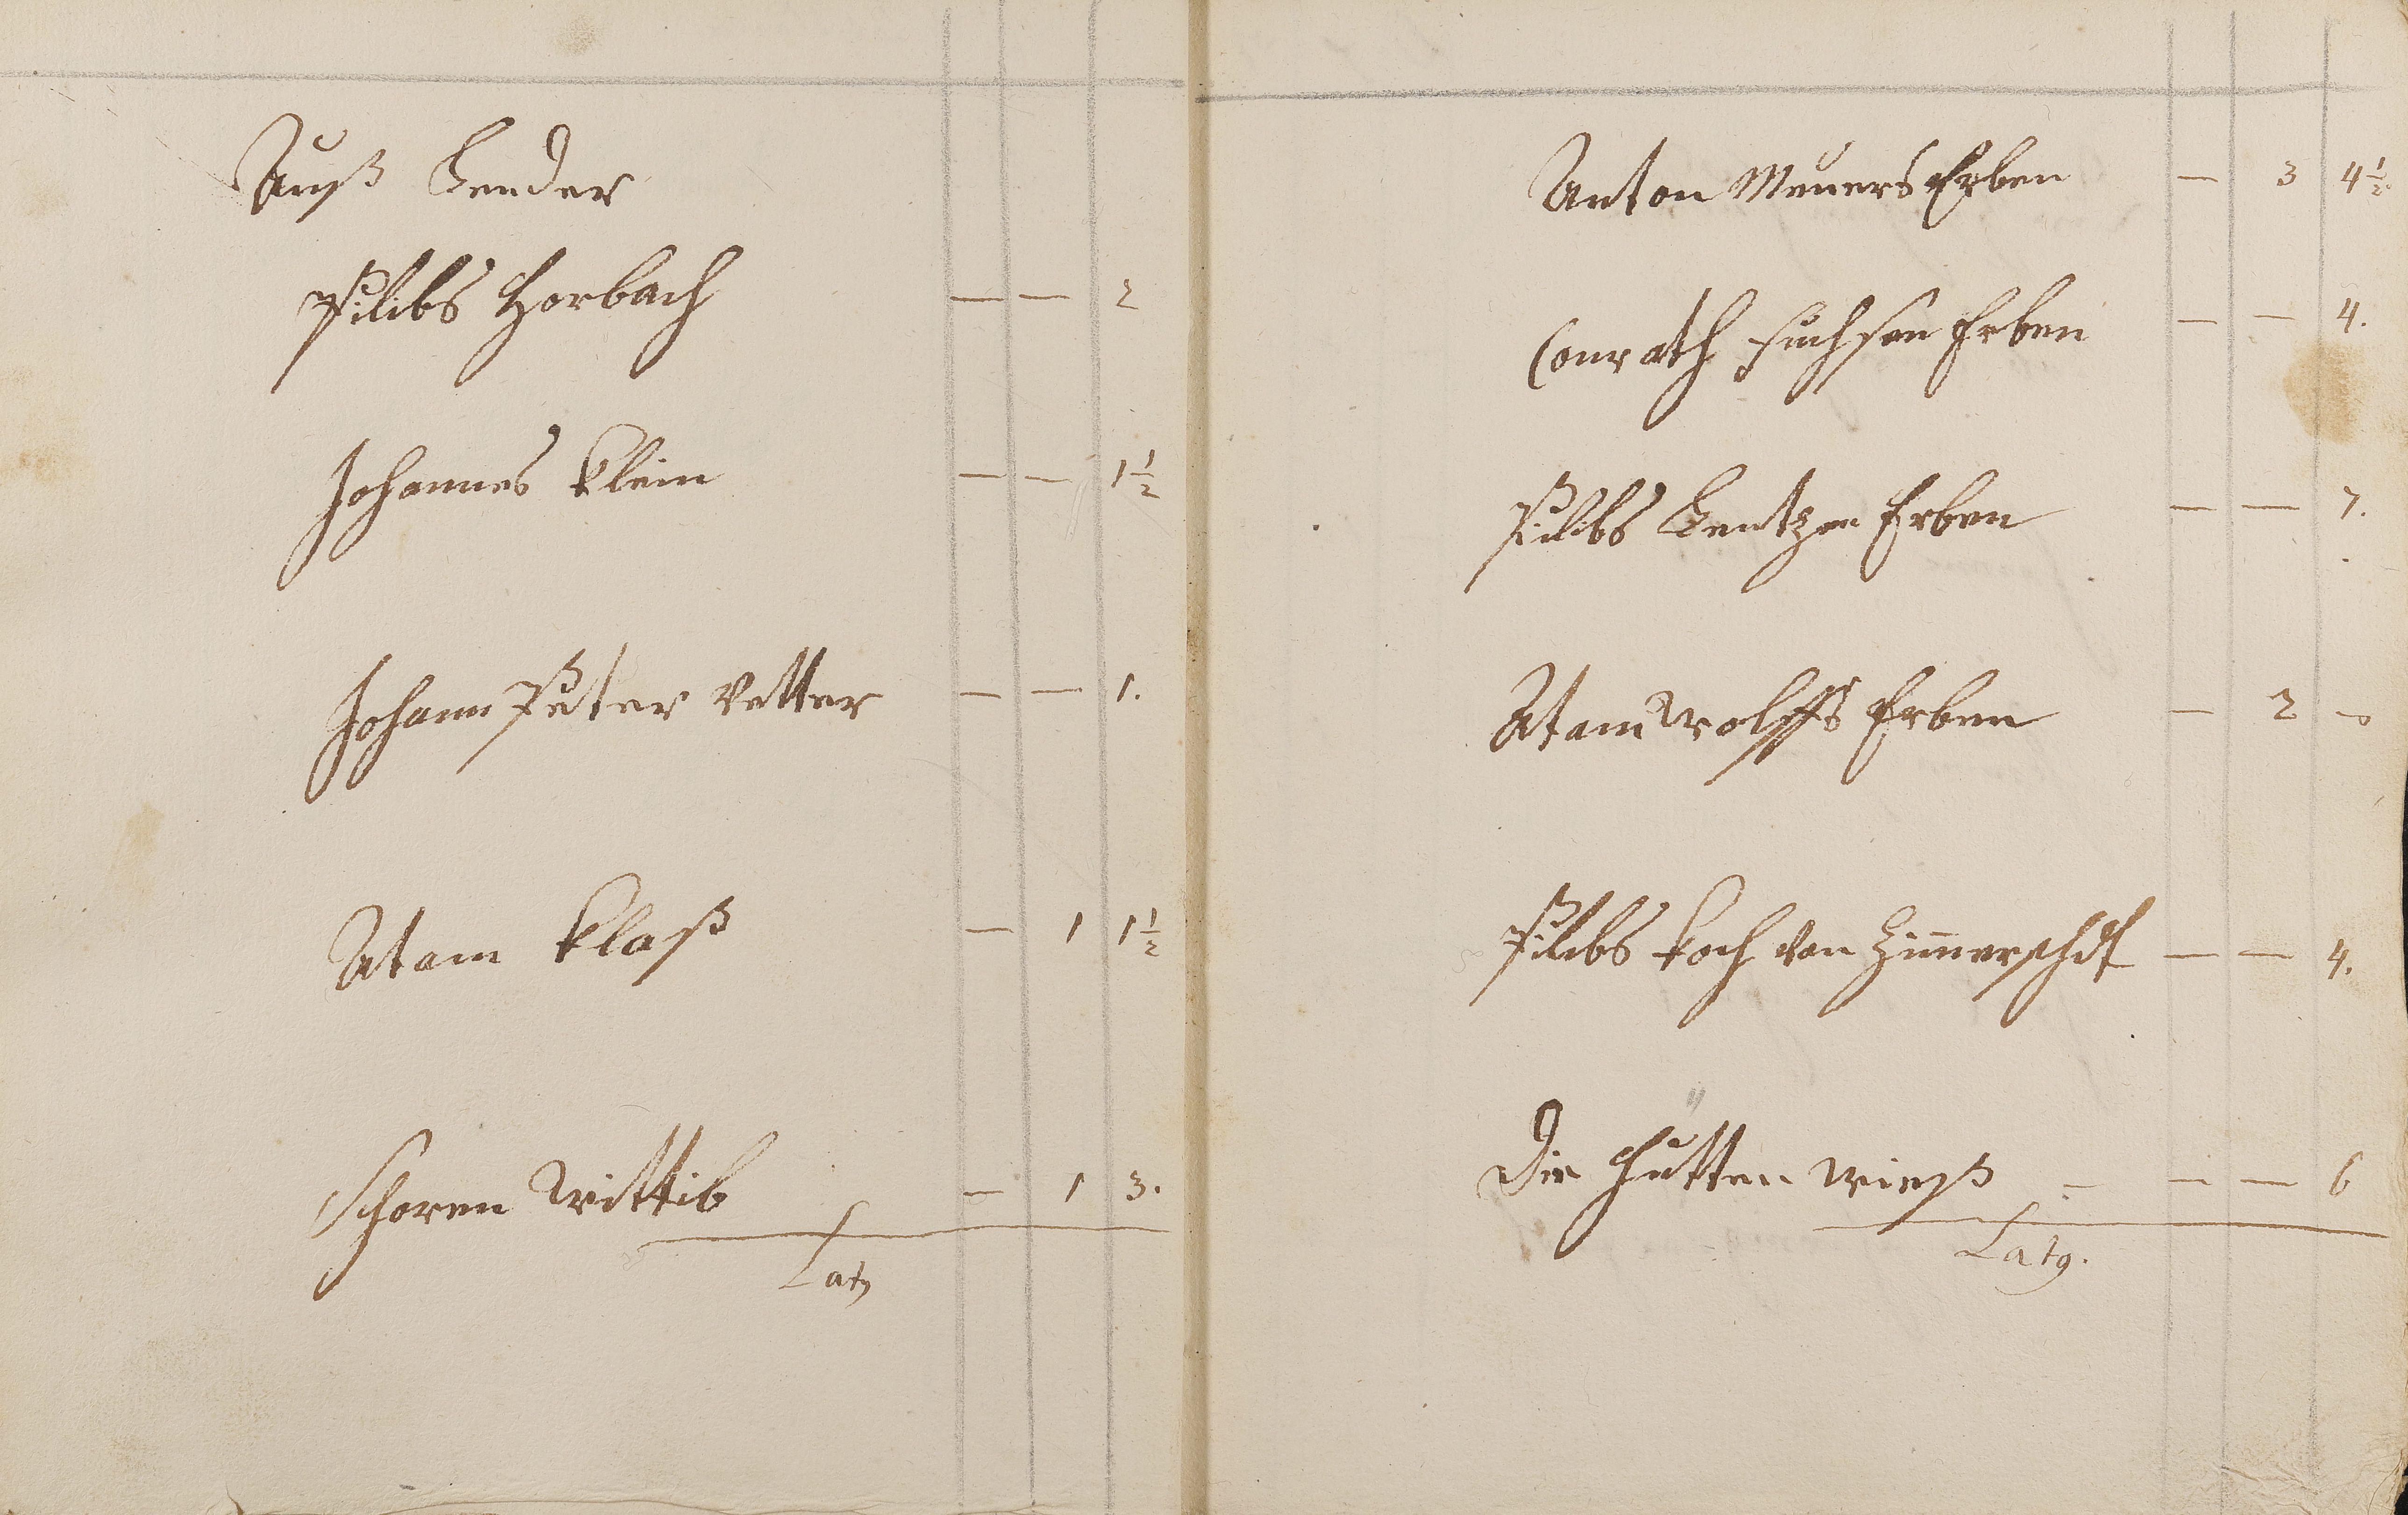 Auß Lender
Pilibs Horbach — — 2
Johannes Klein — — 1 1/2
Johann Peter Vetter — — 1.
Atam Klaß — 1 1 1/2
Schoren Wittib — 1 3.
Latg
Anton Meuers Erben — 3 4 1/2.
Conrath Fuchsen Erben — — 4.
Pilibs Lentzen Erben — — 7.
Atam Wolffs Erben — 2 —
Pilibs Koch von Zim̄erschdt — — 4.
Die Hütten Wieß — — — 6
Latg.